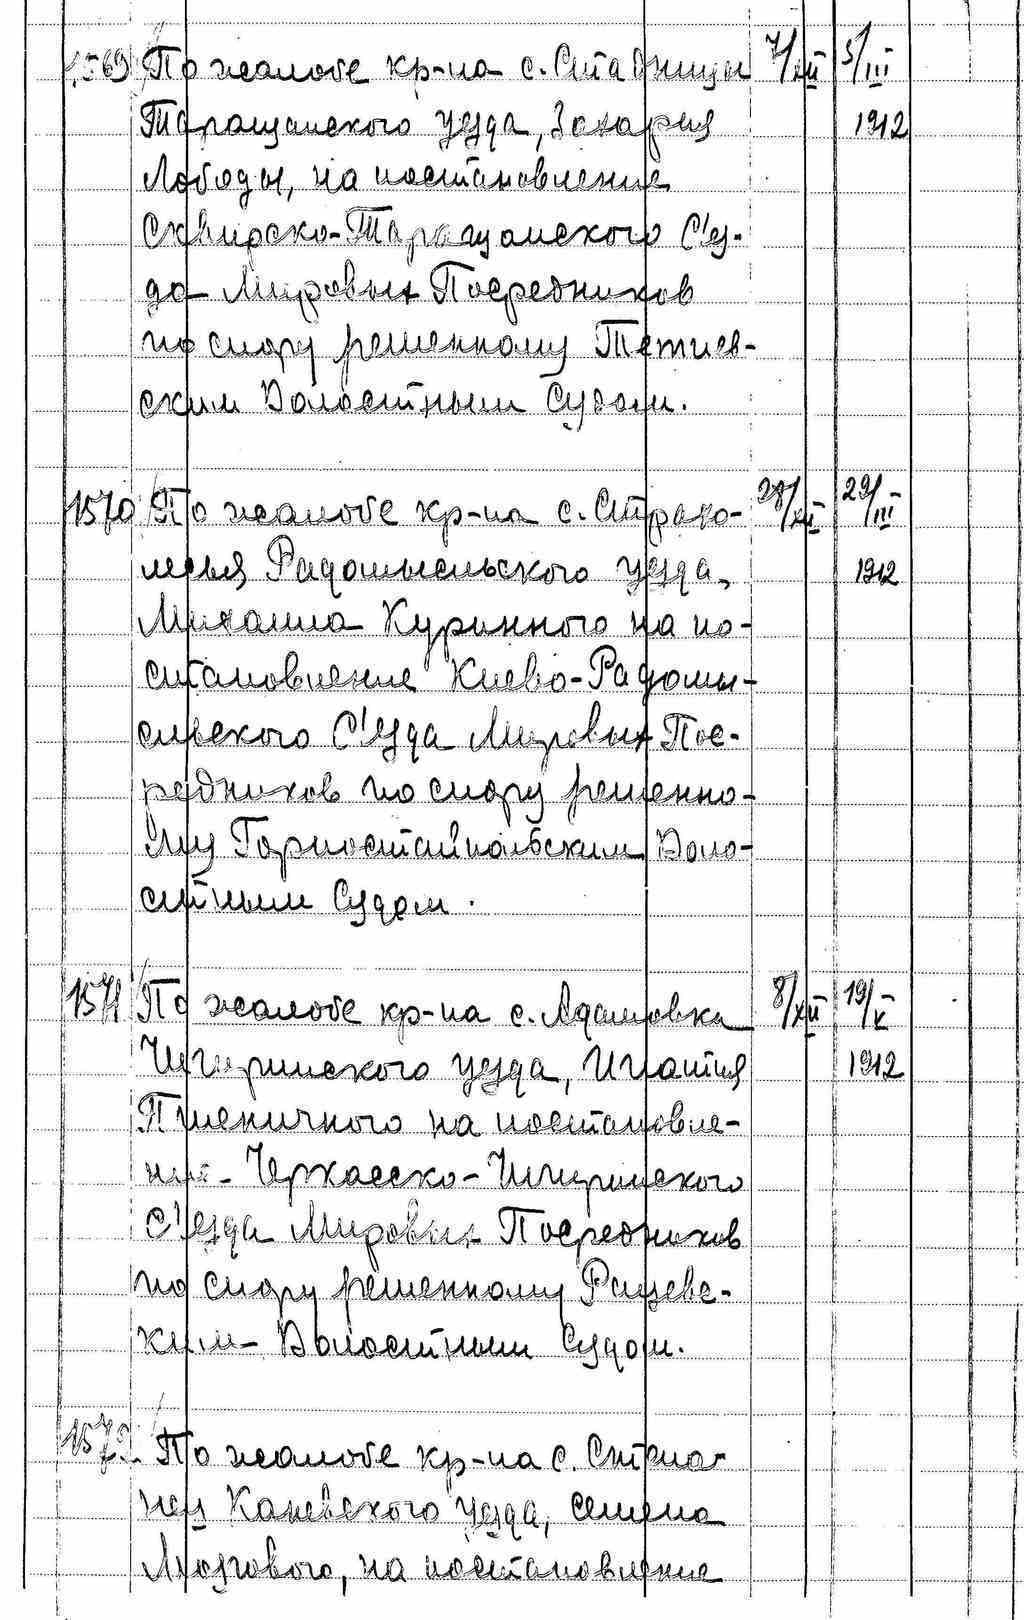 1569 По жалобе кр-на с. Стадницы 7/XII 5/III
Таращанского уезда, Захария 1912
Лободы, на постановление
Сквирско-Таращанского С'ез-
да Мировых Посредников
по спору решенному Тетиев-
ским Волостным Судом.
1570 По жалобе кр-на с. Страхо- 28/XII 29/III
лесья Радомысльского уезда, 1912
Михаила Куринного на по-
становление Киево-Радомы-
сльского С'езда Мировых Пос-
редников по спору решенно-
му Горностайпольским Воло-
стным Судом.
1571 По жалобе кр-на с. Адамовка 8/XII 19/V
Чигиринского уезда, Игнатия 1912
Пшеничного на постановле-
ние Черкасско-Чигиринского
С'езда Мировых Посредников
по спору решенному Рацевс-
ким Волостным Судом.
1572 По жалобе кр-на с. Степа-
нец Каневского уезда, Семена
Мозгового, на постановление